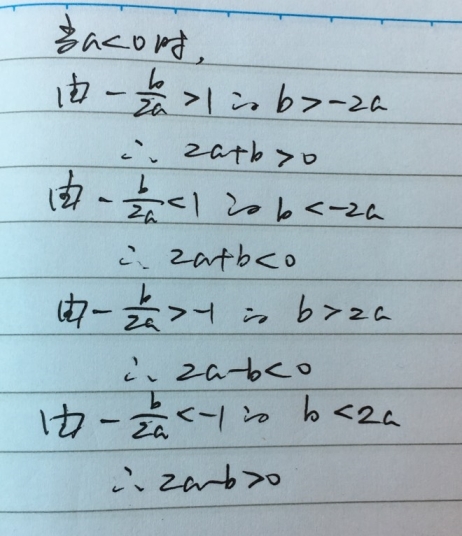 当a<0时,
由-b/2a>1 ∴ b>-2a
∴ 2a+b>0
由-b/2a<1 ∴ b<-2a
∴ 2a+b<0
由-b/2a>-1 ∴ b>2a
∴ 2a-b<0
由-b/2a<-1 ∴ b<2a
∴ 2a-b>0